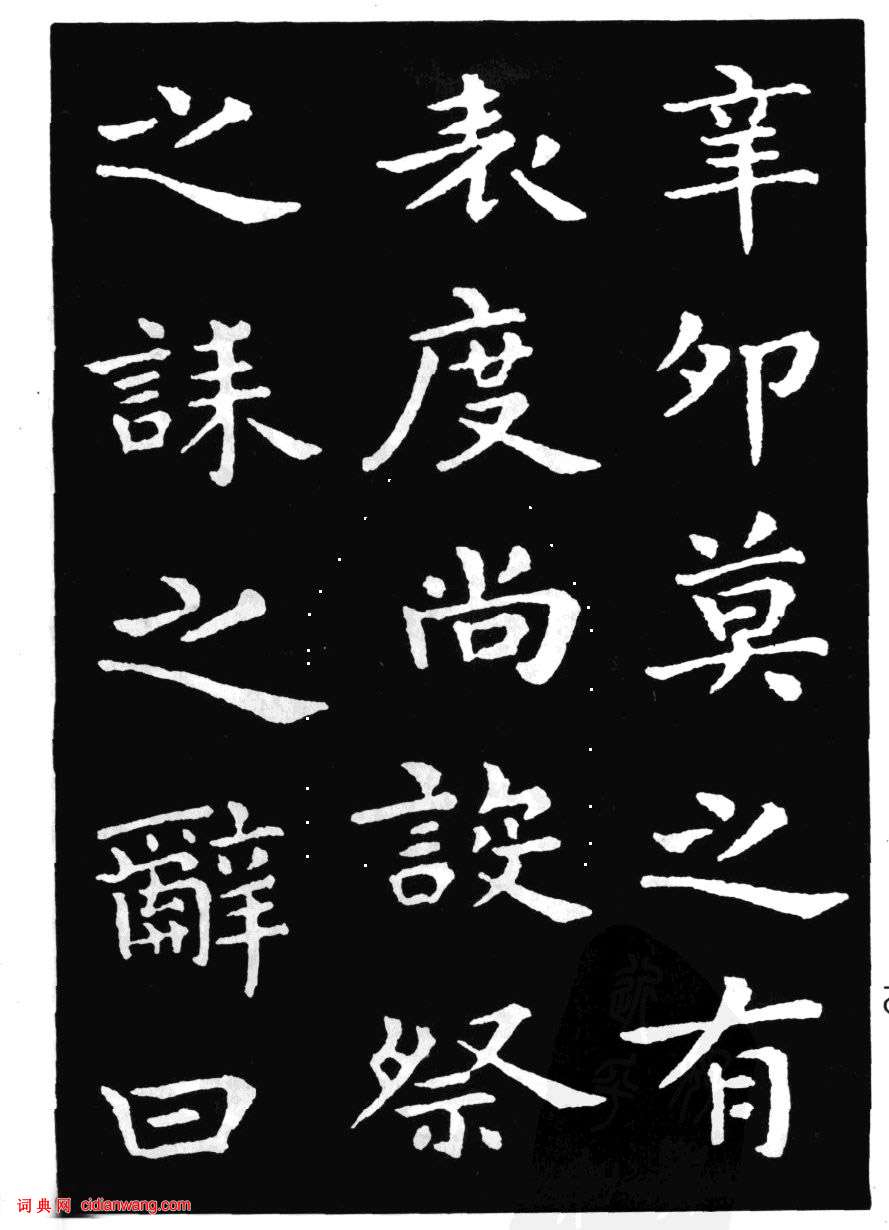 辛卯莫之有
表度尚設祭
之誄之辭曰
词典网 cidianwang.com